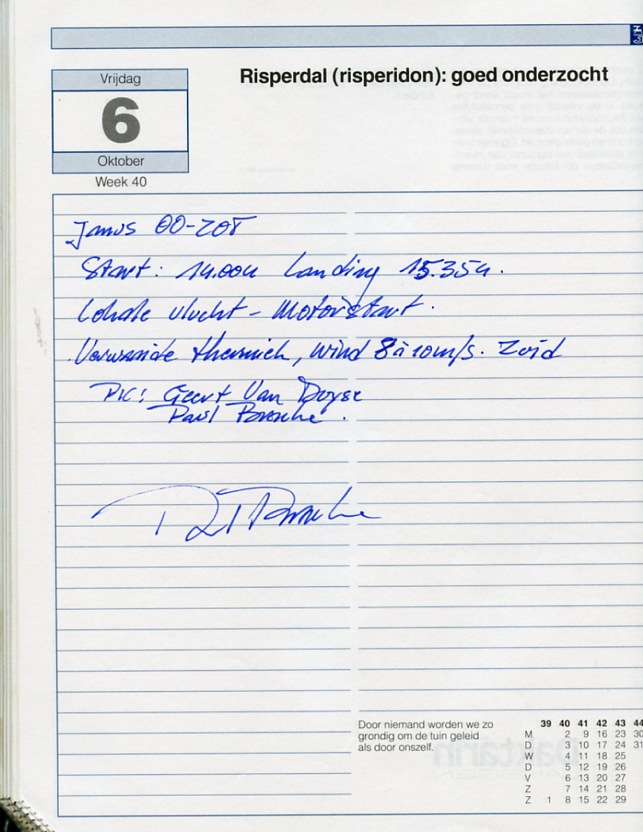 Vrijdag
6
Oktober
Week 40
Risperdal (risperidon): goed onderzocht
Janus OO-ZOT
Start: 14.00u Landing 15.35u.
Lokale vlucht - Motorstart.
Verwaaide thermiek, wind 8 à 10 m/s. Zuid
PIC: Geert Van
Paul
Door niemand worden we zo
grondig om de tuin geleid
als door onszelf.
39 40 41 42 43 44
M 2 9 16 23 30
D 3 10 17 24 31
W 4 11 18 25
D 5 12 19 26
V 6 13 20 27
Z 7 14 21 28
Z 1 8 15 22 29